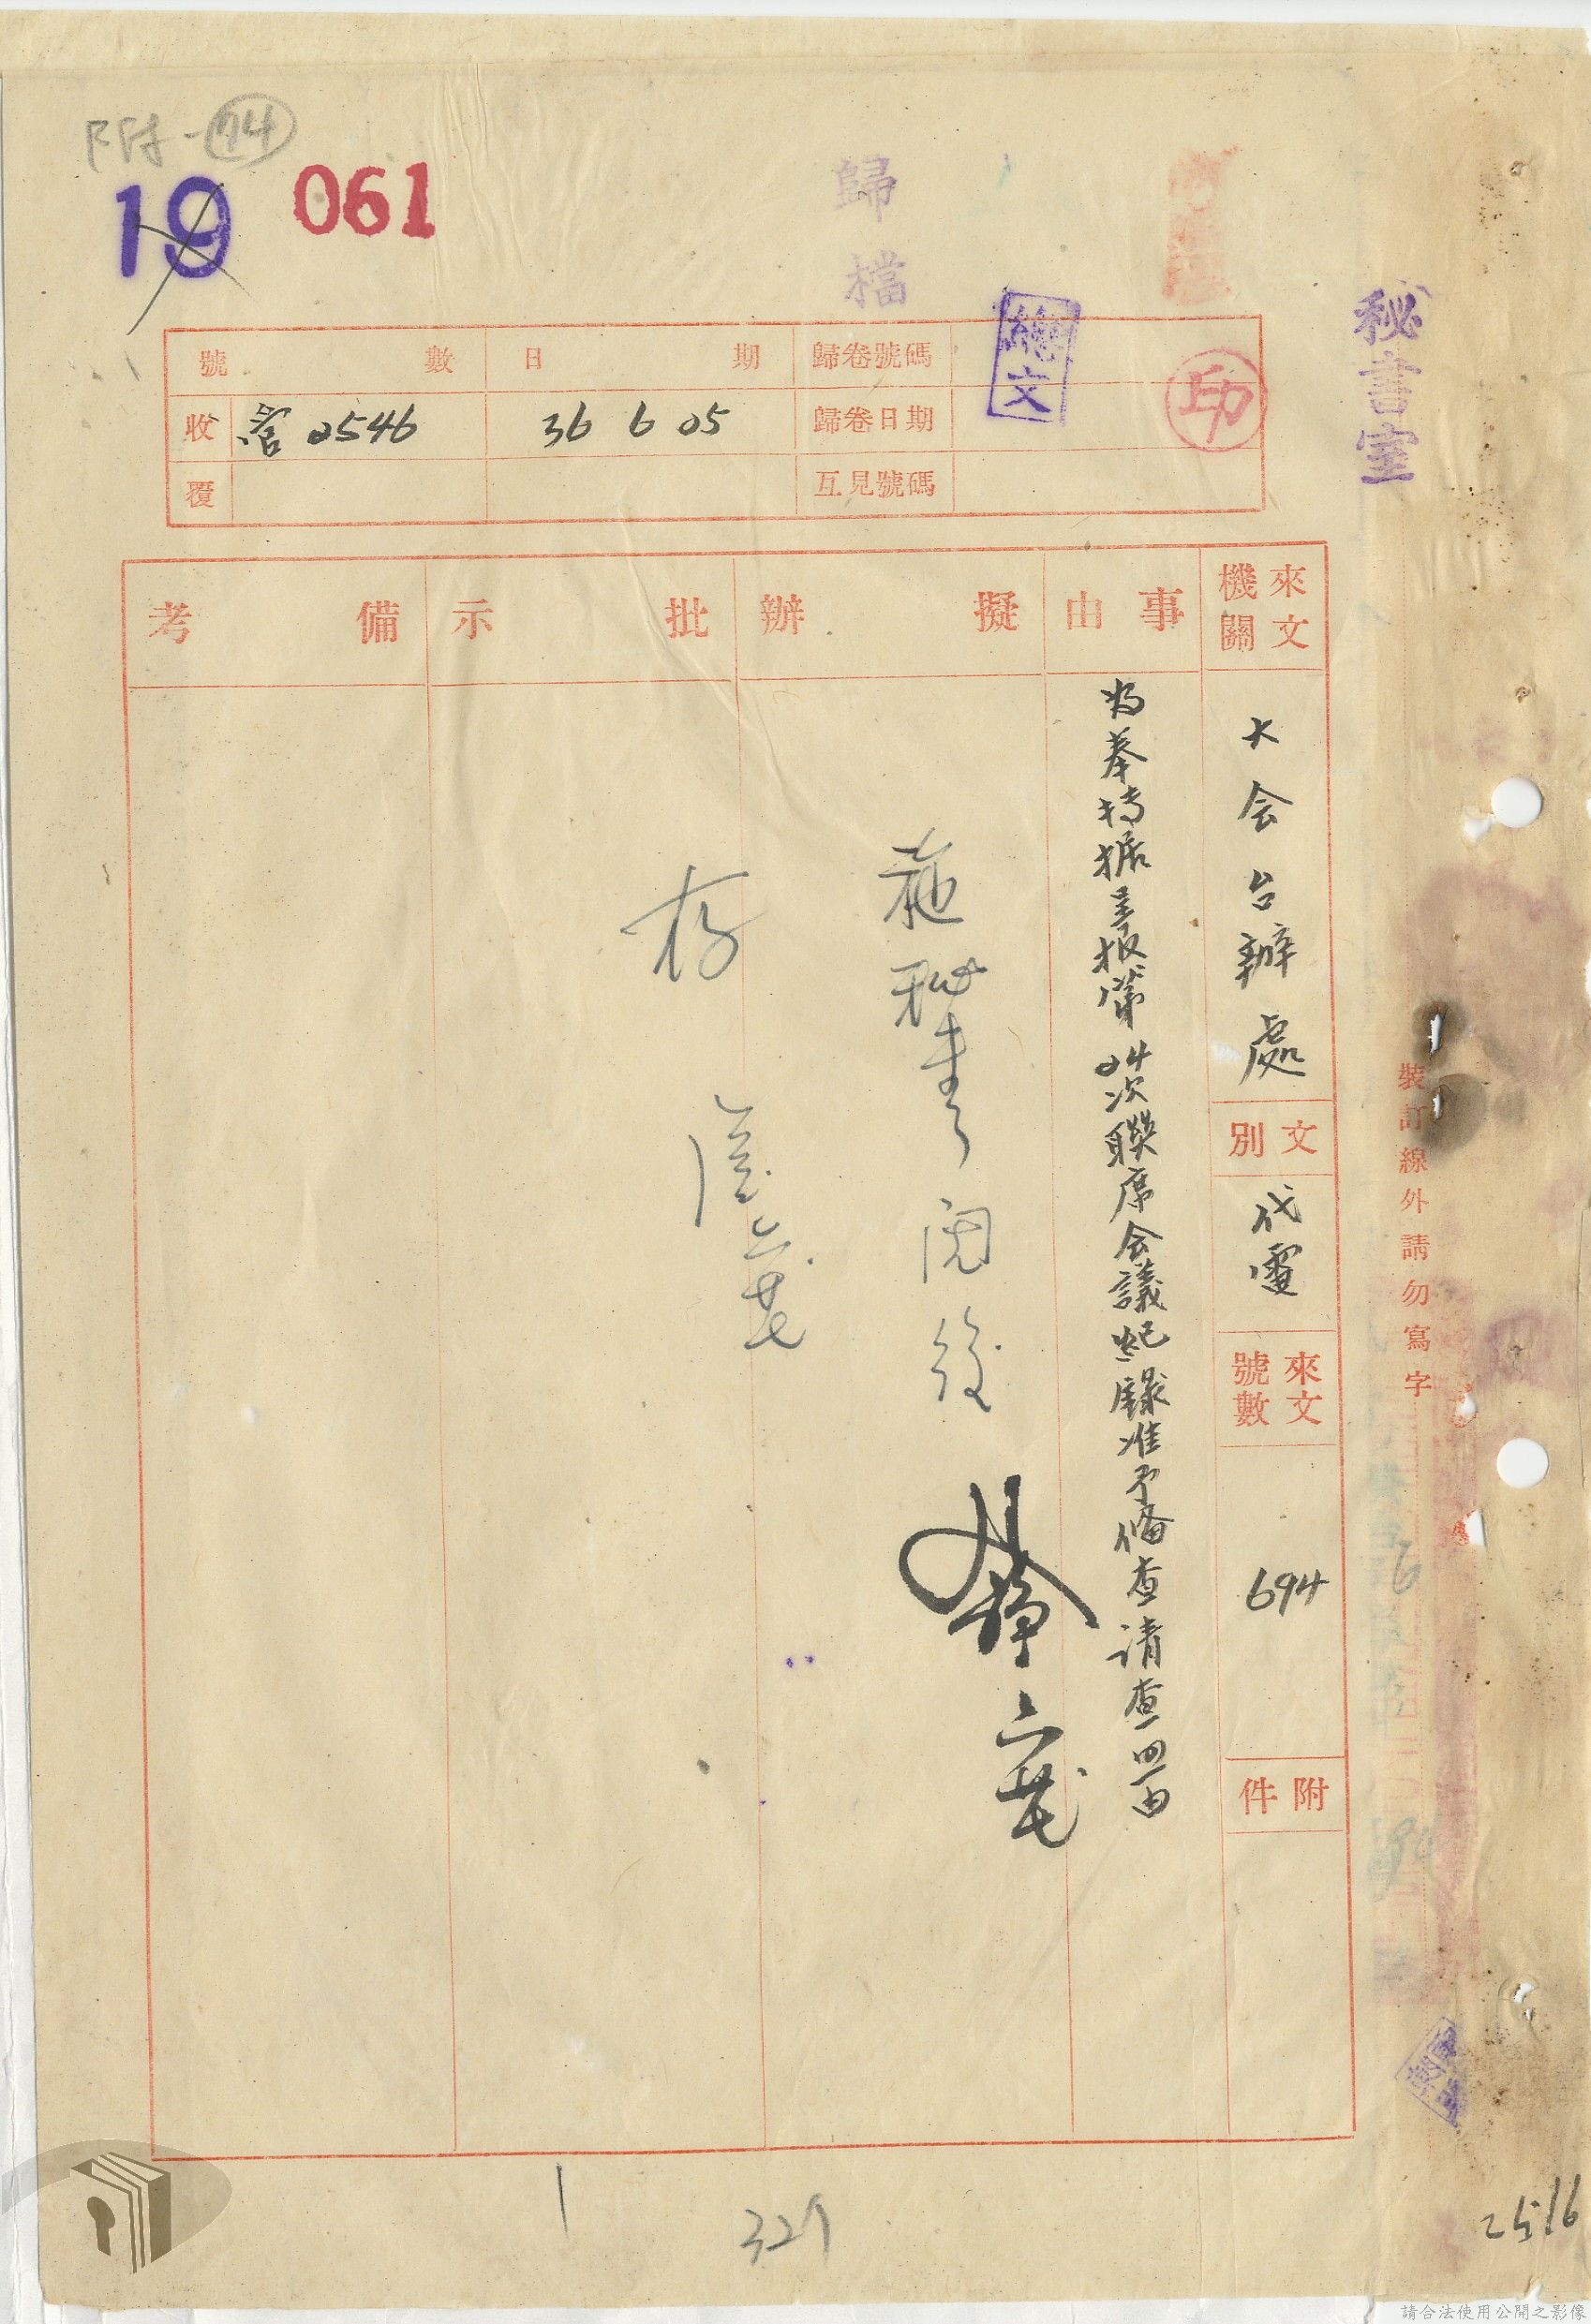 附-74
19 061
歸檔
秘書室
總文
印
號數 日期 歸卷號碼
收 營2546 36 6 25 歸卷日期
覆 互見號碼
來文機關
大会台辦處
文別
代電
來文號數
694
附件
事由
為奉轉据呈报第24次聯席会議紀録准予备查请查照由
擬辦
施秘書閱後
六廿七
批示
存
六廿七
備考
裝訂線外請勿寫字
329
2516
請合法使用公開之影像